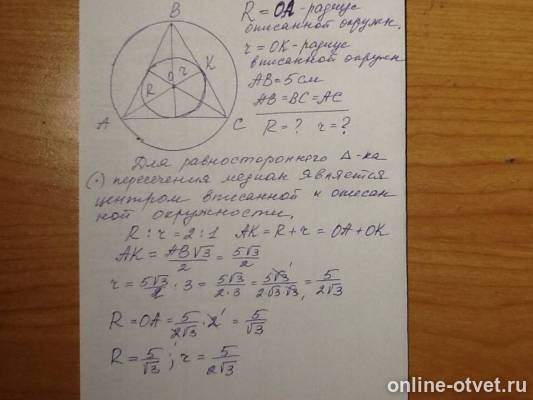 B
K
O
r
R
A
C
R = OA - радиус
описанной окружн.
r = OK - радиус
вписанной окружн
AB = 5 см
AB = BC = AC
R = ? r = ?
Для равностороннего Δ-ка
(·) пересечения медиан является
центром вписанной и описан
ной окружности.
R : r = 2 : 1 AK = R + r = OA + OK
AK = AB√3/2 = 5√3/2
r = 5√3/2 · 3 = 5√3/2·3 = 5√3/2√3·√3 = 5/2√3
R = OA = 5/2√3 · 2 = 5/√3
R = 5/√3 ; r = 5/2√3
online-otvet.ru